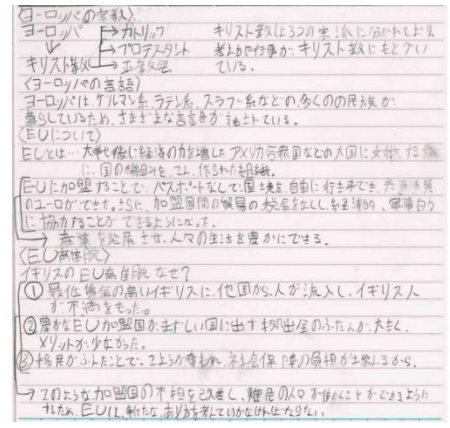 〈ヨーロッパの宗教〉
ヨーロッパ → カトリック キリスト教は3つの宗派に分かれており、
↓ → プロテスタント 考え方や行事が、キリスト教にもとづい
キリスト教 → 正教会 ている。
〈ヨーロッパの言語〉
ヨーロッパは、ゲルマン系、ラテン系、スラブ系などの多くのの民族が
暮らしているため、さまざまな言語が話されている。
〈EUについて〉
EUとは… 大戦後に経済の力を増したアメリカ合衆国などの大国に対抗する
に、国の枠組みをこえ、作られた組織。
EUに加盟することで、パスポートなしで国境を自由に行き来でき、共通通貨
のユーロができた。さらに、加盟国間の貿易の税金をなくし、経済的、軍事的
に協力することができるようになった。
→ 産業を発展させ、人々の生活を豊かにできる。
〈EU離脱〉
イギリスのEU離脱 なぜ?
① 最低賃金の高いイギリスに、他国から人が流入し、イギリス人
が不満をもった。
② 豊かなEU加盟国がまずしい国に出す拠出金のふたんが大きく、
メリットが少なかった。
③ 移民がふえたことで、 社会保障の負担が から。
→ このような加盟国の不担を改善し、難民の人々が働くことができるように
するため、EUは、新たなあり方を考えていかなければならない。